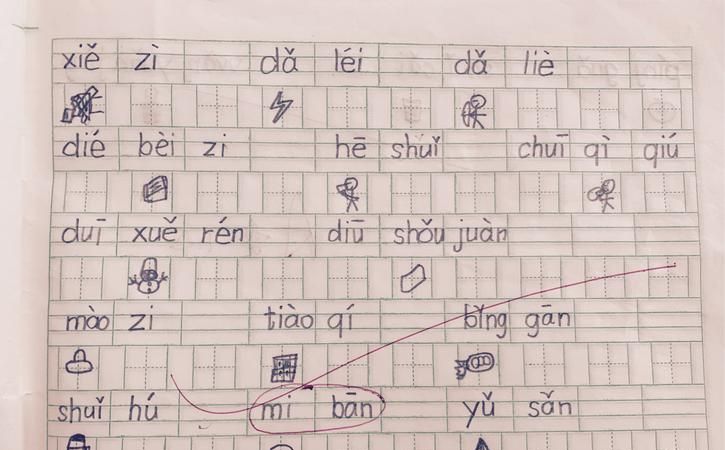 xiě zì dǎ léi dǎ liè
dié bèi zi hē shuǐ chuī qì qiú
duī xuě rén diū shǒu juàn
mào zi tiào qí bǐng gān
shuǐ hú mǐ bān yǔ sǎn